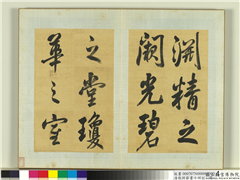 淵精之
闕光碧
之堂瓊
華之室